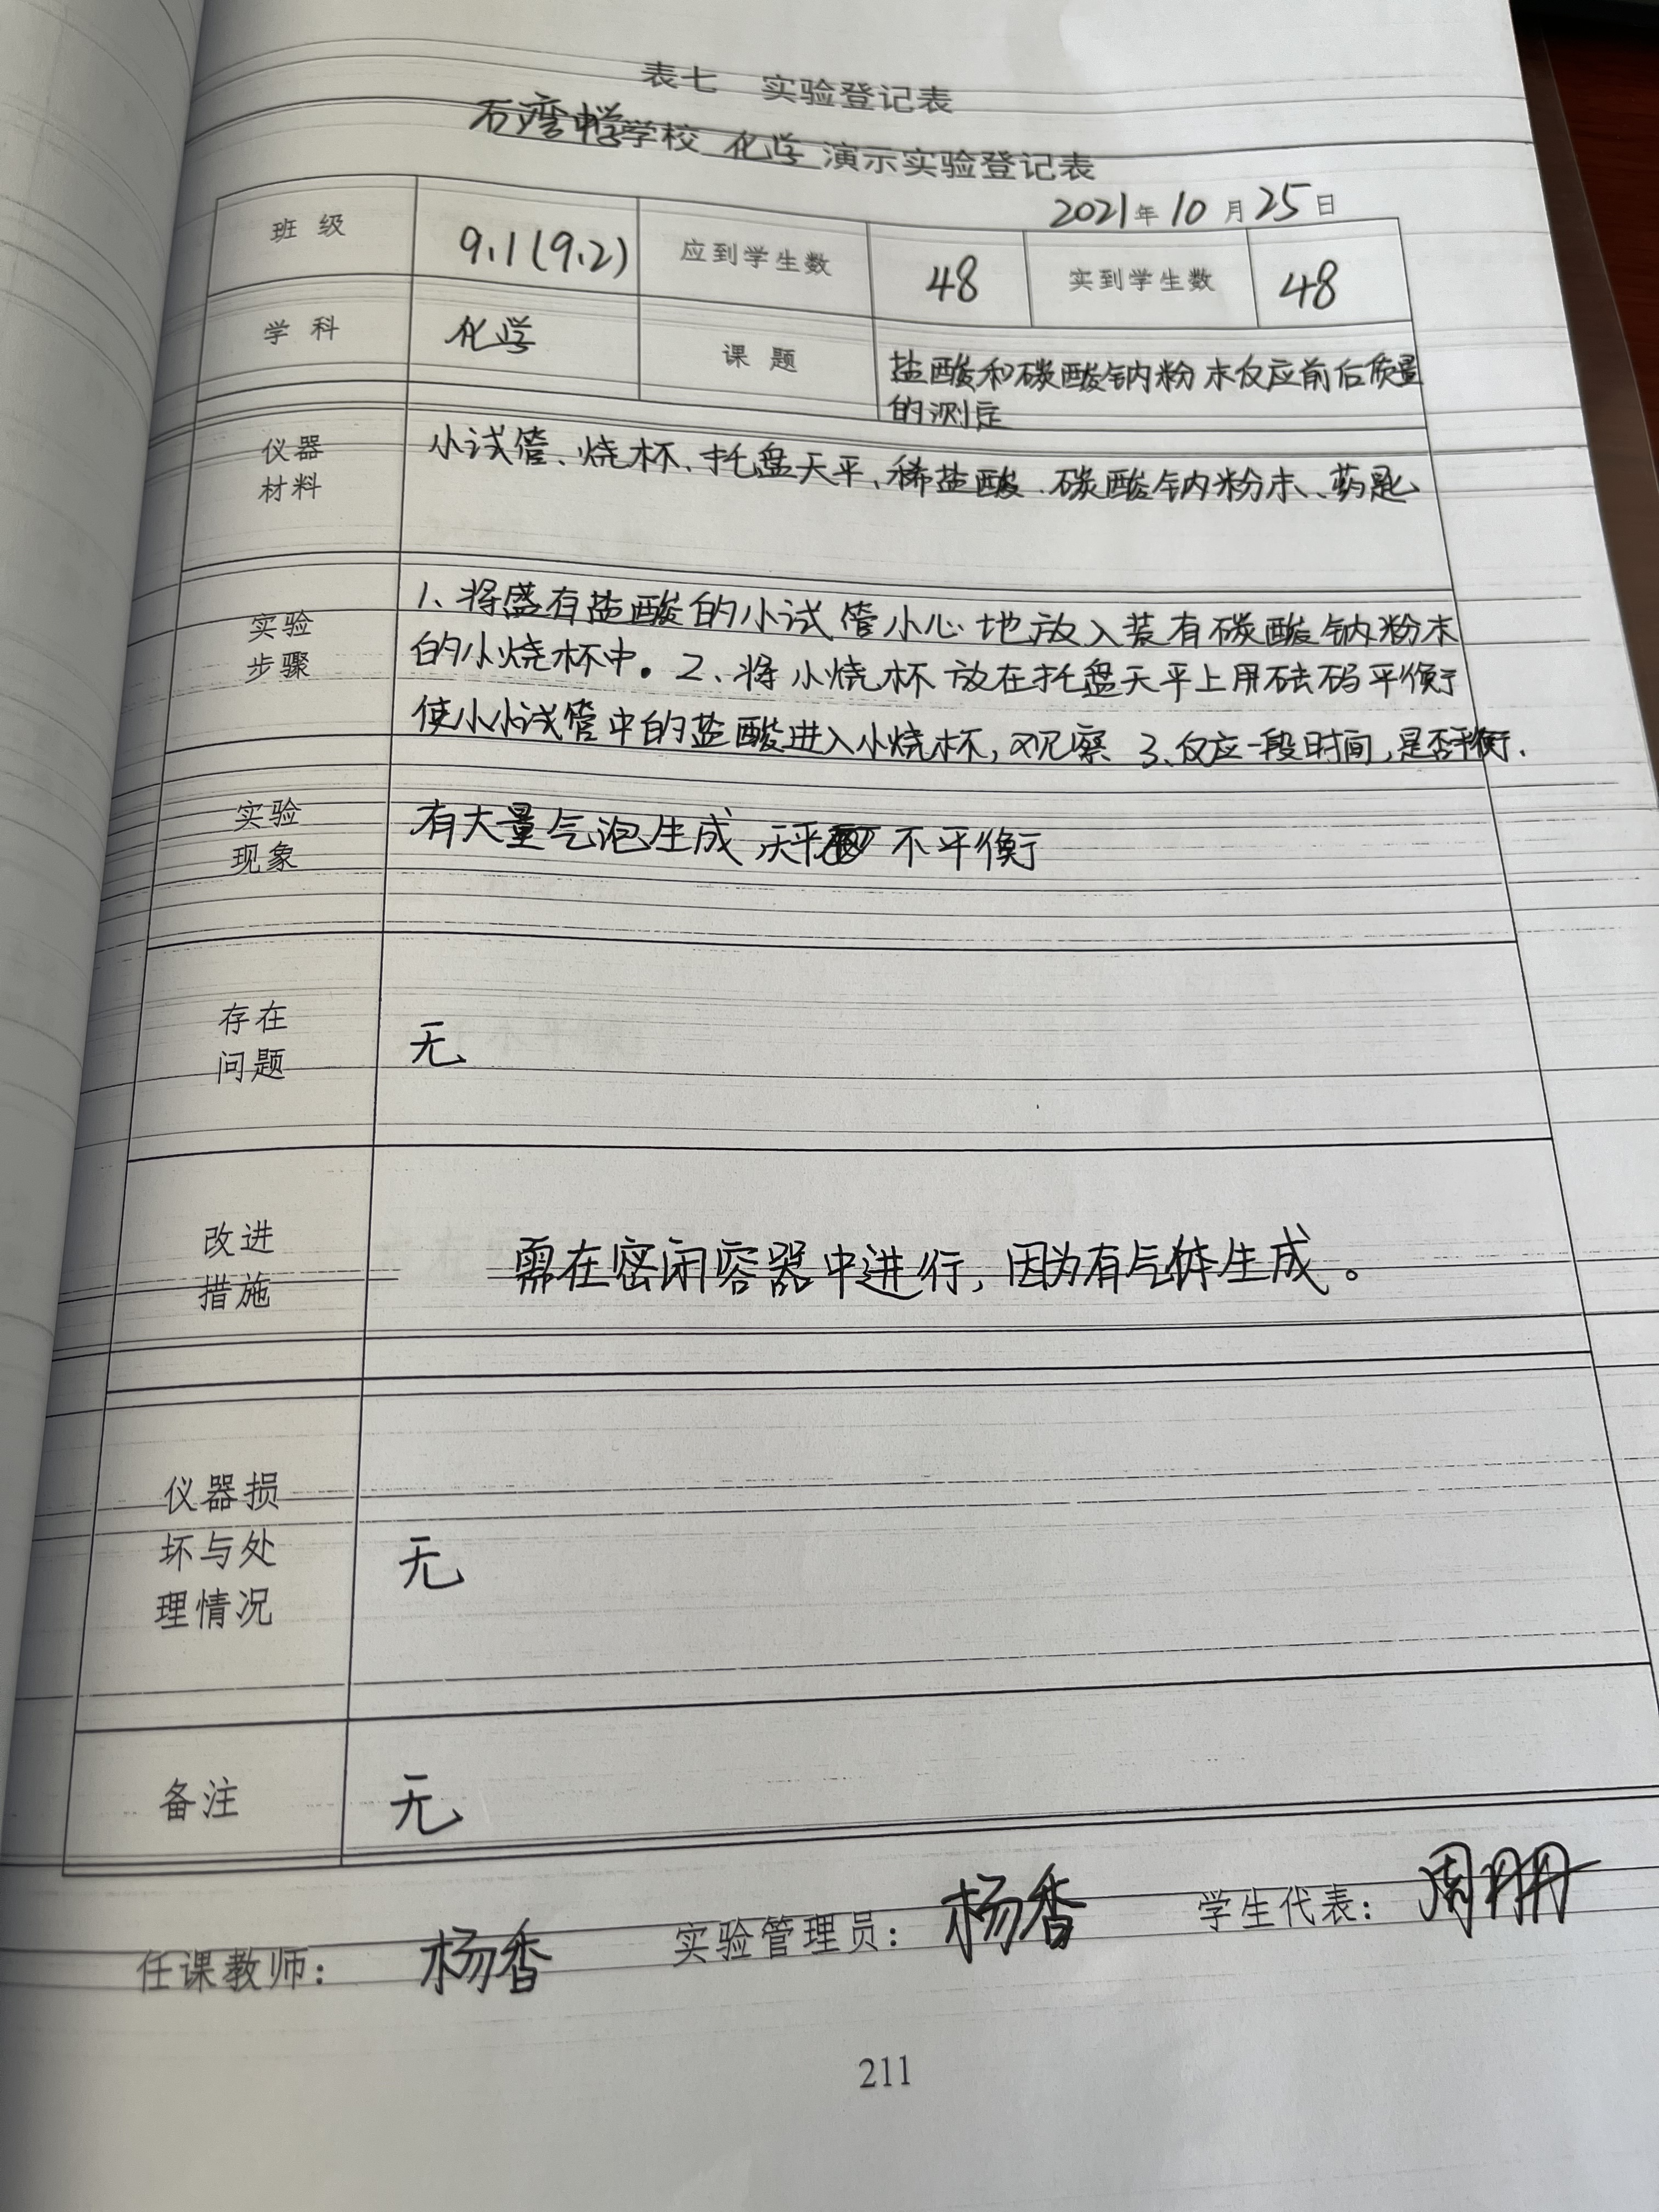 表七 实验登记表
石湾中学学校 化学 演示实验登记表
2021年10月25日
班级 9.1(9.2) 应到学生数 48 实到学生数 48
学科 化学 课题 盐酸和碳酸钠粉末反应前后质量
的测定
仪器
材料
小试管、烧杯、托盘天平、稀盐酸、碳酸钠粉末、药匙
实验
步骤
1、将盛有盐酸的小试管小心地放入装有碳酸钠粉末
的小烧杯中。2、将小烧杯放在托盘天平上用砝码平衡
使小小试管中的盐酸进入小烧杯,观察 3、反应一段时间,是否平衡.
实验
现象
有大量气泡生成,天平 不平衡
存在
问题
无
改进
措施
需在密闭容器中进行,因为有气体生成。
仪器损
坏与处
理情况
无
备注
无
任课教师: 杨香 实验管理员: 杨香 学生代表: 周
211